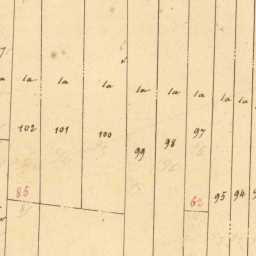 la la la la la la la la
102 101 100 99 98 97
95 94
85 62